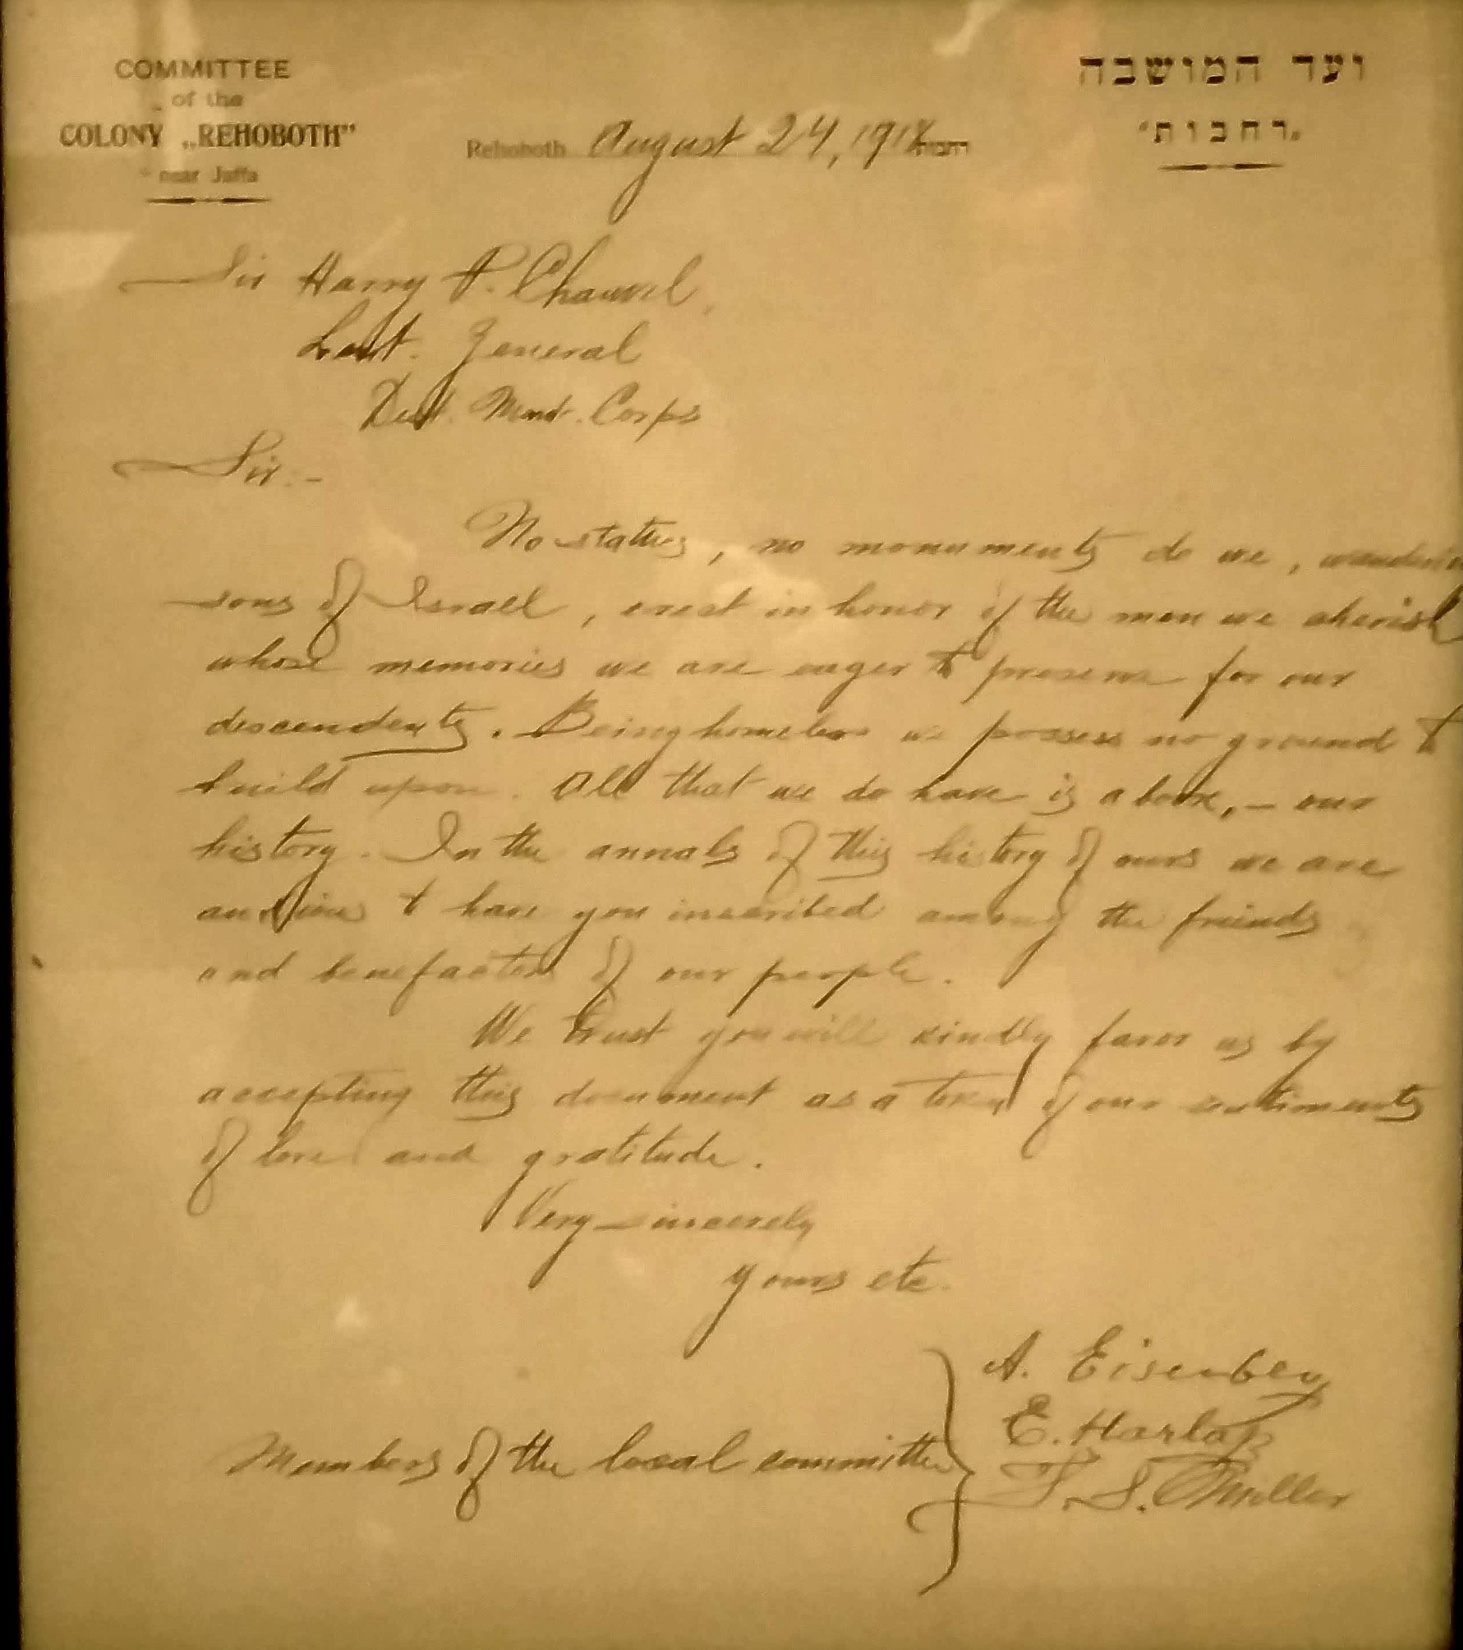 COMMITTEE
of the
COLONY „REHOBOTH”
near Jaffa
ועד המושבה
„רחבות”
Rehoboth August 24, 1918 רחבות
Sir Harry P. Chauvel
Leut. General
Des't. Mont. Corps
Sir:-
No statues, no monuments do we, wandering
sons of Israel, erect in honor of the men we cherish
whose memories we are eager to preserve for our
descendents. Being homeless we possess no ground to
build upon. All that we do have is a book, — our
history. In the annals of this history of ours we are
anxious to have you inscribed among the friends
and benefactors of our people.
We trust you will kindly favor us by
accepting this document as a token of our sentiments
of love and gratitude.
Very sincerely
yours etc.
Members of the local committee
A. Eisenberg
E. Harlap
S. Miller